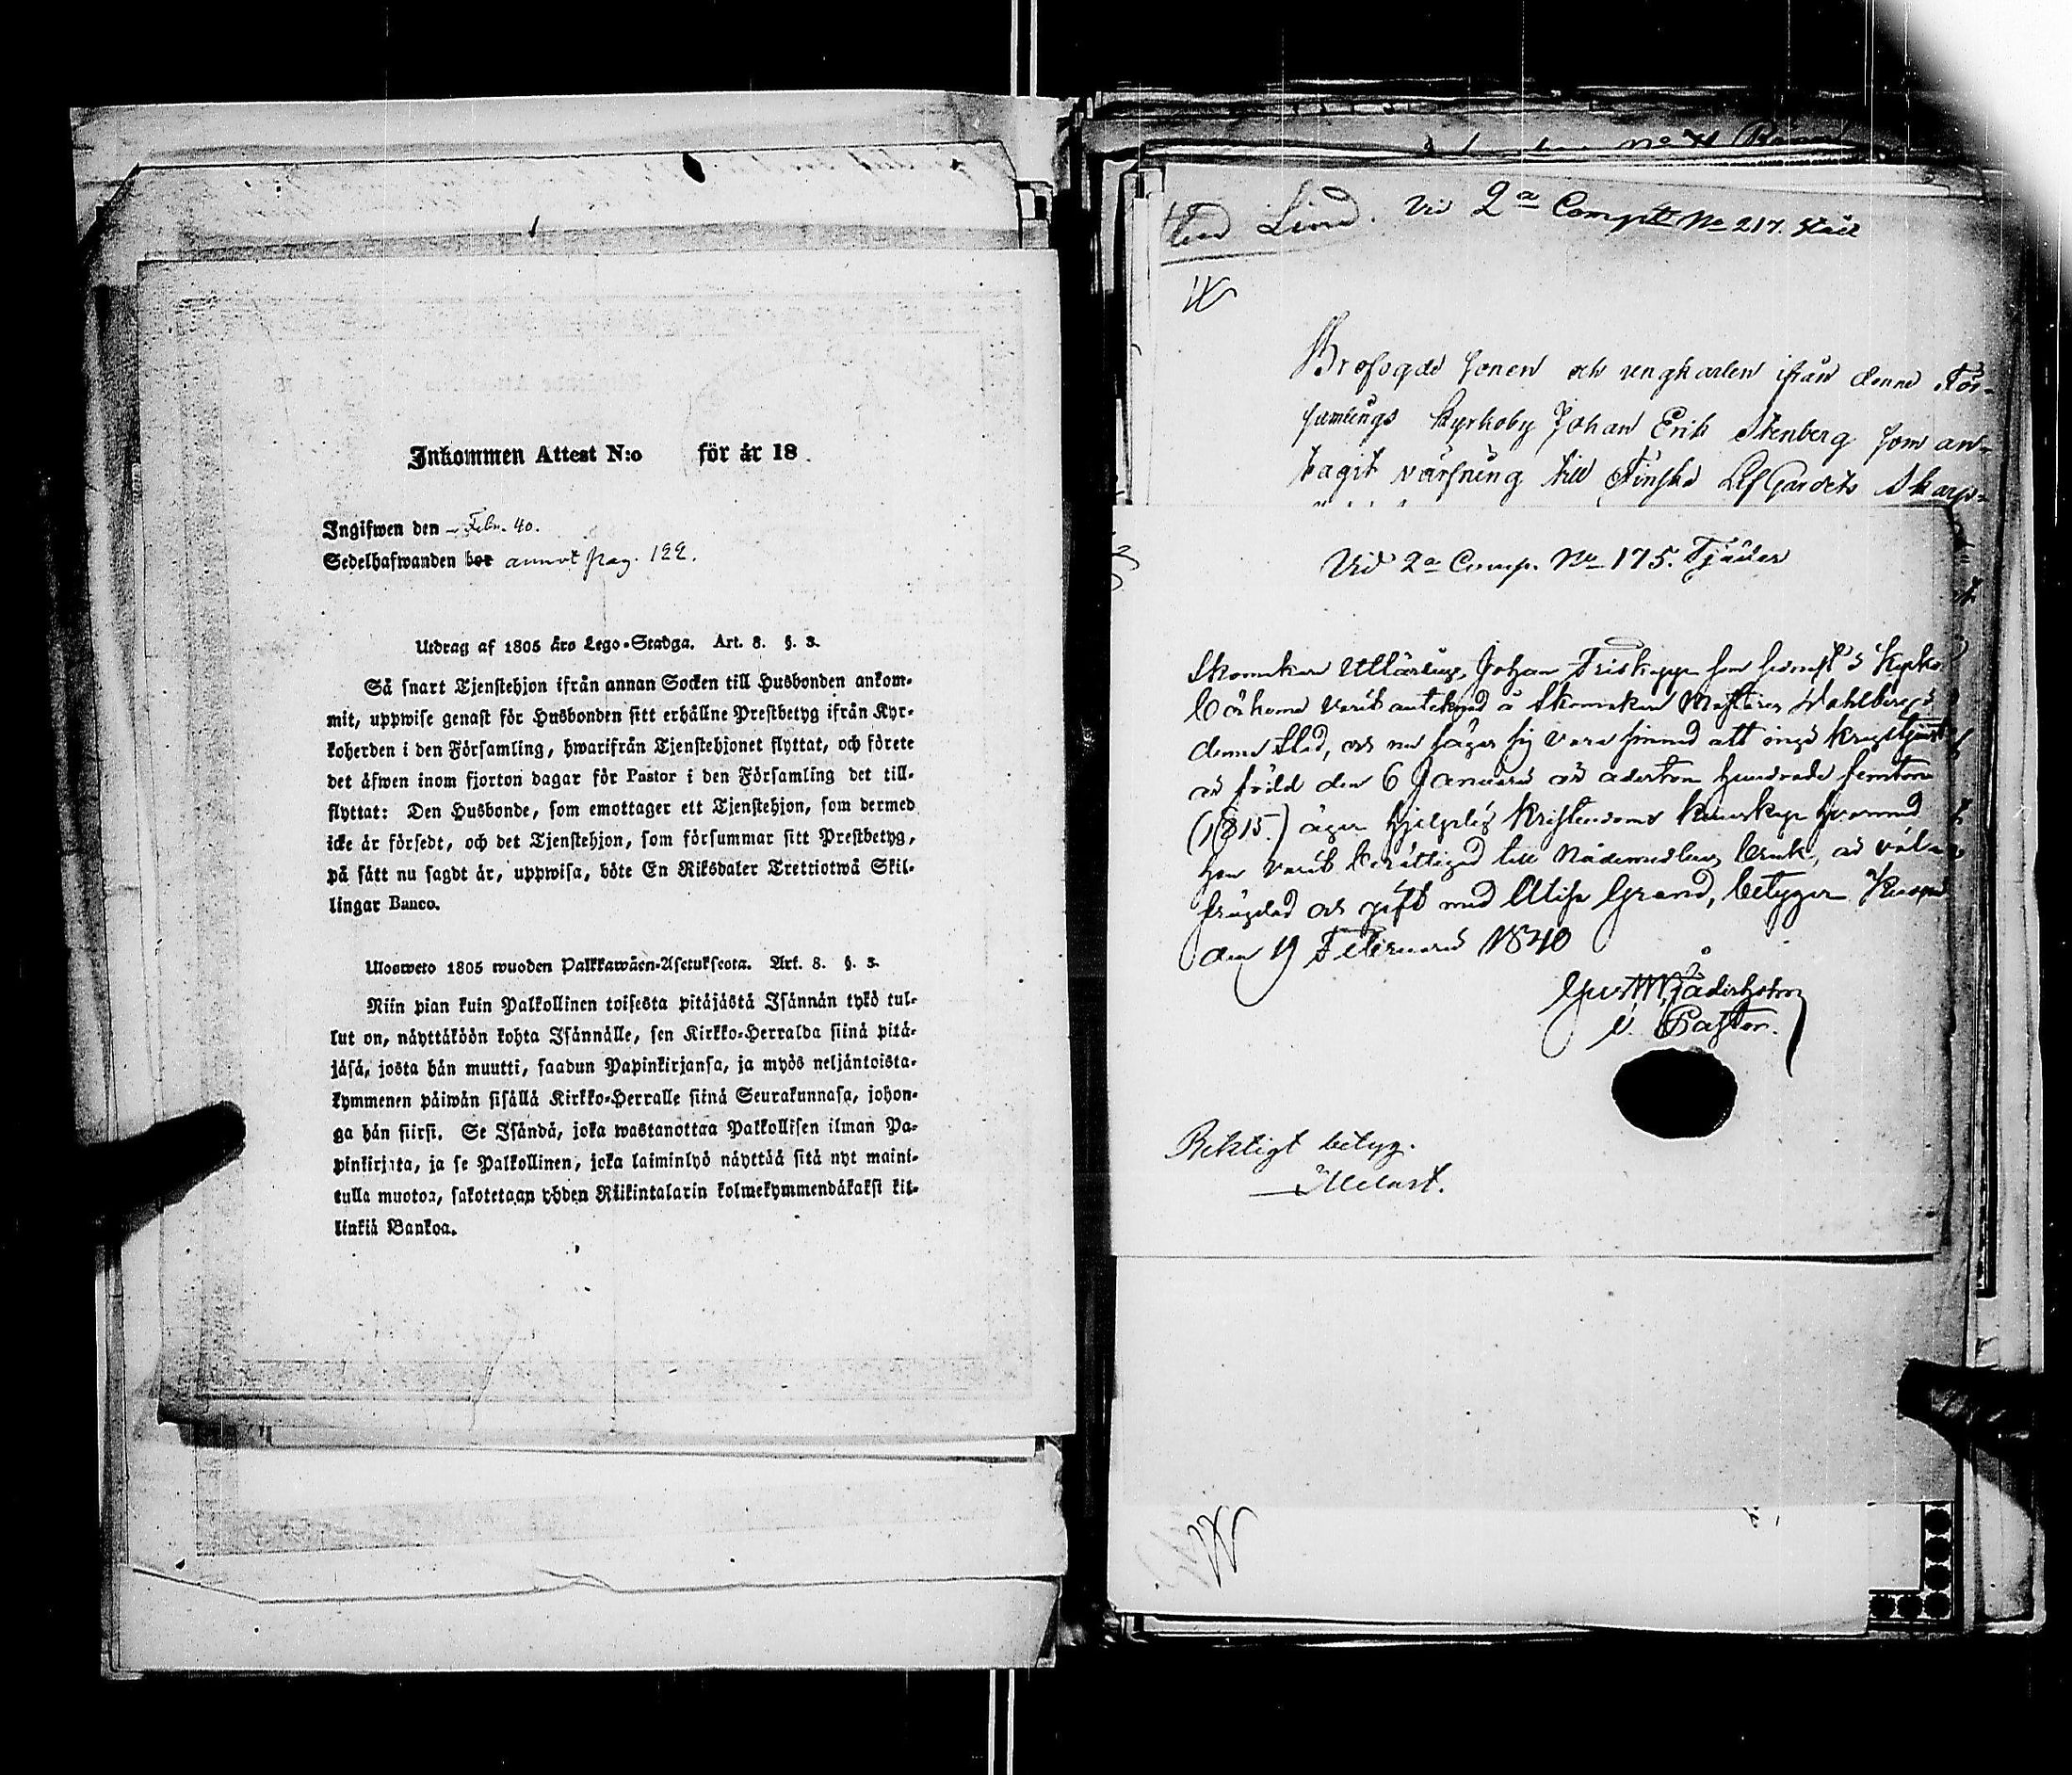 Inkommen Attest N:o för år 18 .
Ingifwen den – Febr. 40.
Sedelhafwanden bor annot pag. 122.
Utdrag af 1805 års Lego-Stadga. Art. 8. §. 3.
Så snart Tjenstehjon ifrån annan Socken till Husbonden ankom-
mit, uppwise genast för Husbonden sitt erhållne Prestbetyg ifrån Kyr-
koherden i den Församling, hwarifrån Tjenstehjonet flyttat, och förete
det äfwen inom fjorton dagar för Pastor i den Församling det till-
flyttat: Den Husbonde, som emottager ett Tjenstehjon, som dermed
icke är försedt, och det Tjenstehjon, som försummar sitt Prestbetyg,
på sätt nu sagdt är, uppwisa, böte En Riksdaler Trettiotwå Skil-
lingar Banco.
Ulosweto 1805 wuoden Palkkawäen-Asetuksesta. Art. 8. §. 3.
Niin pian kuin Palkollinen toisesta pitäjästä Isännän tykö tul-
lut on, näyttäköön kohta Isännälle, sen Kirkko-Herralda siinä pitä-
jäsä, josta hän muutti, saadun Papinkirjansa, ja myös neljäntoista-
kymmenen päiwän sisällä Kirkko-Herralle siinä Seurakunnasa, johon-
ga hän siirsi. Se Isändä, joka wastanottaa Palkollisen ilman Pa-
pinkirjata, ja se Palkollinen, joka laiminlyö näyttää sitä nyt maini-
tulla muotoa, sakotetaan yhden Riikintalarin kolmekymmendäkaksi kil-
linkiä Bankoa.
No 71
Lind. Vid 2a Comp No 217. Stål
Brofogde sonen och ungkarlen ifrån denne För-
samlings Kyrkoby Johan Erik Stenberg som an-
tagit värfning till Finska LifGardets Skarp-
Vid 2a Comp. No 175. Tjäder
Skomakare Utlärling Johan Friskopp som
varit antecknad å Skomakare Mästaren Wahlbergs
denne Stad, och nu säger sig vara sinnad att ingå krigstjenst
är född den 6 Januarii år aderton hundrade femton
(1815.) äger hjelplig Kristendoms kunskap hvarmed
han varit berättigad till Nådemedlens bruk, är väl
frägdad och gift med Grand, betygar
den 19 Februarii 1840
v. Pastor.
Riktigt betyg.